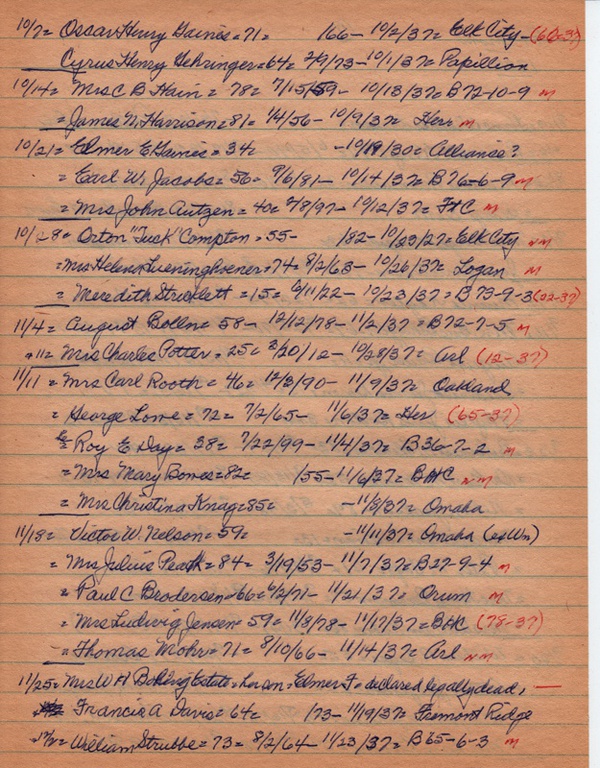 10/7= Oscar Henry Gaines = 71= 166- 10/2/37= Elk City- (66-37)
Cyrus Henry Gehringer=64= 2/9/73- 10/1/37= Papillion
10/14= Mrs C B Hain = 78= 7/15/59- 10/13/37= B72-10-9 M
= James N. Harrison=81= 1/4/56- 10/9/37= Her M
10/21= Elmer E Gaines= 34= -10/19/30= Alliance?
= Earl W. Jacobs= 56= 9/6/81- 10/14/37= B76-6-9 M
= Mrs John Autzen= 40= 2/8/97- 10/12/37= FtC M
10/28= Orton "Tuck" Compton = 55- /82- 10/23/27= Elk City NM
=Mrs Helena Lueninghoener=74= 8/2/63- 10/26/37= Logan M
= Meredith Stricklett =15= 6/11/22- 10/23/37= B73-9-3 (22-37)
11/4= August Bolln= 58- 12/12/78- 11/2/37= B72-7-5 M
"11= Mrs Charles Potter= 25= 2/20/12- 10/28/37= Arl (12-37)
11/11= Mrs Carl Rooth= 46= 12/3/90- 11/9/37= Oakland
= George Lowe= 72= 7/2/65- 11/6/37= Her (65-37)
= Roy E Day= 38= 7/22/99- 11/4/37= B36-7-2 M
= Mrs Mary Bowes=82= /55- 11/6/37= BHC NM
= Mrs Christina Knag=85= -11/8/37= Omaha
11/18= Victor W. Nelson= 59= -11/11/37= Omaha (exWn)
= Mrs Julius Peath= 84= 3/19/53- 11/7/37= B27-9-4 M
= Paul C Brodersen=66= 6/2/71- 11/21/37= Orum M
= Mrs Ludwig Jensen= 59= 11/8/78- 11/17/37= BHC (78-37)
= Thomas Mohr=71= 8/10/66- 11/14/37= Arl NM
11/25= Mrs W H Estate= her son= Elmer F= declared legally dead,
Francis A Davis= 64= /73- 11/19/37= Fremont Ridge
12/2= William Strubbe= 73= 8/2/64- 11/23/37= B65-6-3 M